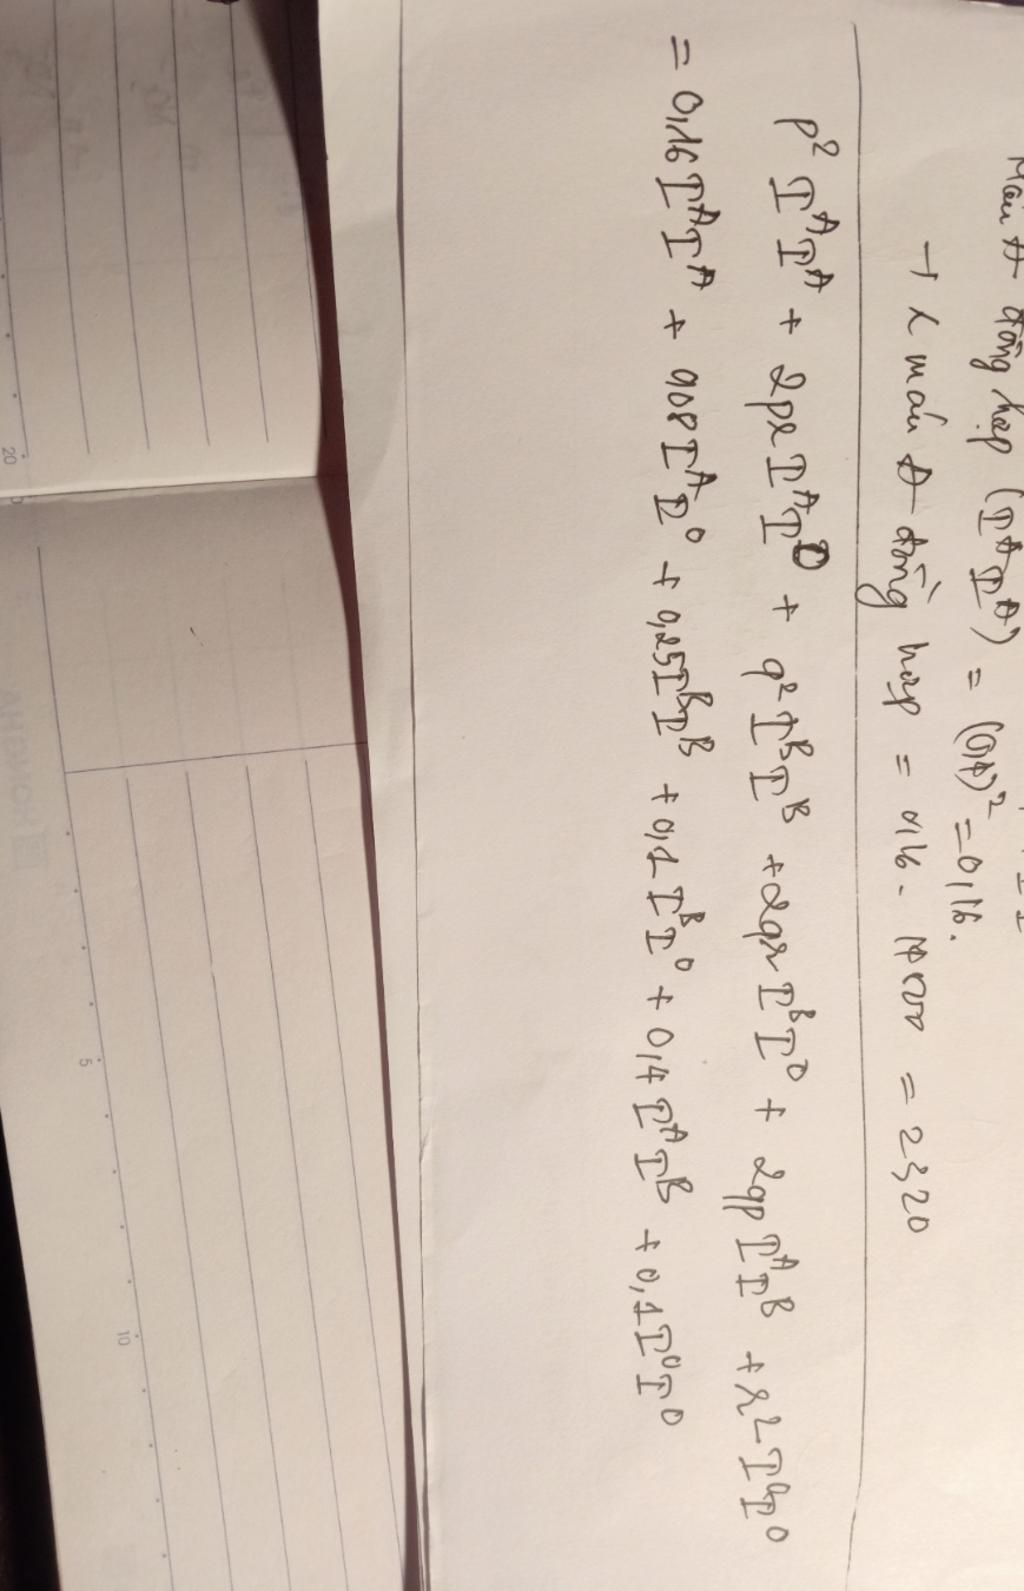 Máu A đồng hợp (IᴬIᴬ) = (0,4)² = 0,16.
máu A đồng hợp = 0,16. 14500 = 2320
p² IᴬIᴬ + 2pr IᴬI⁰ + q² IᴮIᴮ + 2qr IᴮI⁰ + 2qp IᴬIᴮ + r² I⁰I⁰
= 0,16 IᴬIᴬ + 0,08 IᴬI⁰ + 0,25 IᴮIᴮ + 0,1 IᴮI⁰ + 0,4 IᴬIᴮ + 0,1 I⁰I⁰
20
5
10